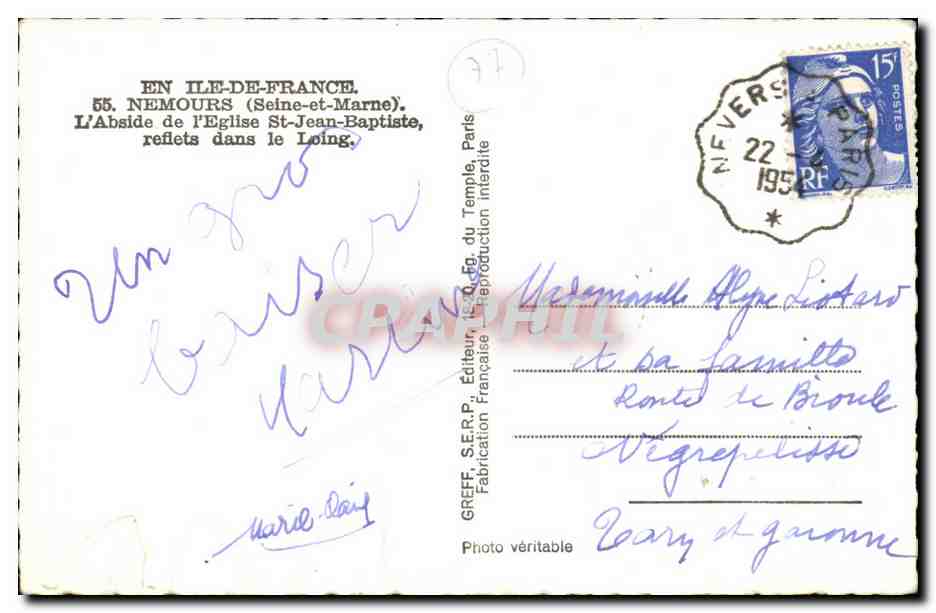 EN ILE-DE-FRANCE.
55. NEMOURS (Seine-et-Marne).
L'Abside de l'Eglise St-Jean-Baptiste,
reflets dans le Loing.
77
Un gros
baiser
Marie-Claire
GREFF, S.E.R.P., Éditeur, 18-20, Fg. du Temple, Paris
Fabrication Française _ Reproduction interdite
Photo véritable
NEVERS A PARIS
22
1954
15F
POSTES
RF
CPAPHIL
Mademoiselle Liotard
et sa famille
Route de Bioule
Négrepelisse
Tarn et garonne